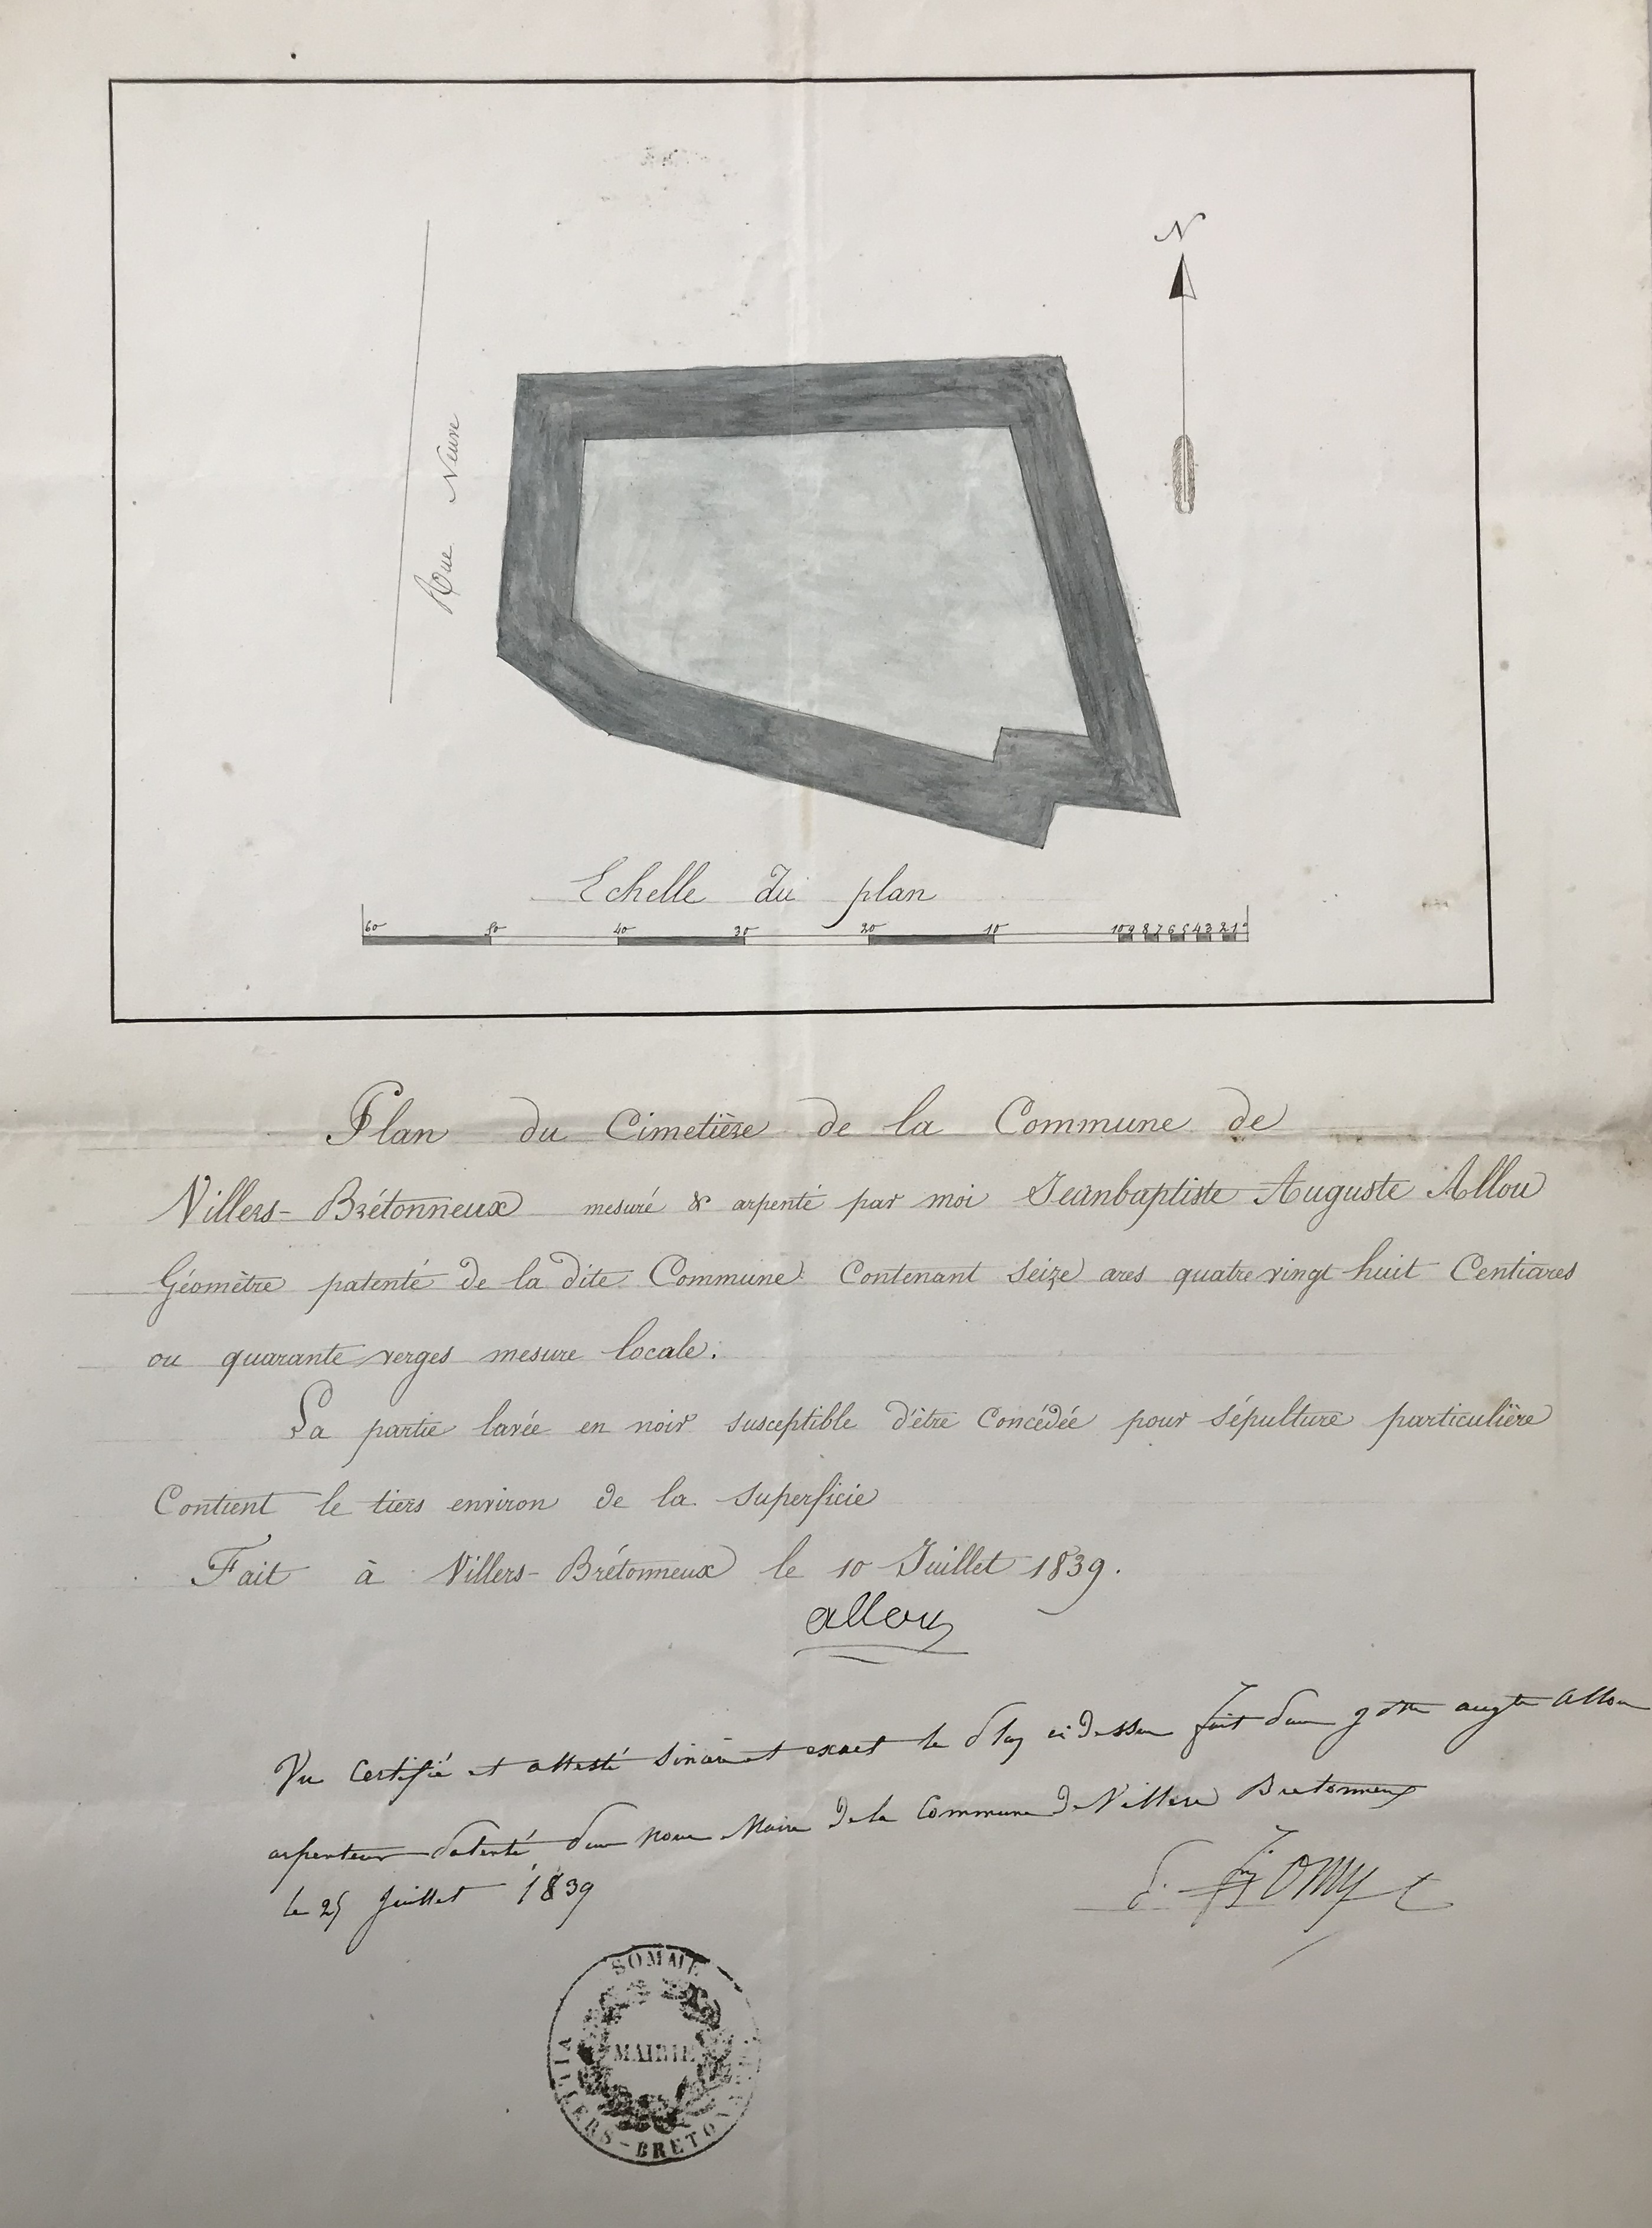 N
Rue Neuve
Echelle du plan
60 50 40 30 20 10 10 9 8 7 6 5 4 3 2 1 0
Plan du Cimetière de la Commune de
Villers-Brétonneux mesuré & arpenté par moi Jeanbaptiste Auguste Allou
Géomètre patenté de la dite Commune Contenant seize ares quatre vingt huit Centiares
ou quarante verges mesure locale.
La partie lavée en noir susceptible d'être Concédée pour sépulture particulière
Contient le tiers environ de la superficie
Fait à Villers-Brétonneux le 10 Juillet 1839.
allou
Vu Certifié et attesté sincère et exact le plan ci dessus fait par augte allou
arpenteur patenté par nous Maire de la Commune de Villers Bretonneux
le 25 Juillet 1839
SOMME
MAIRIE
VILLERS-BRETON